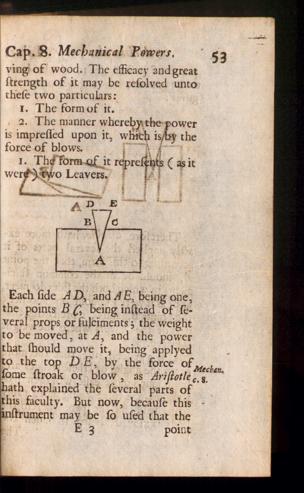 Cap. 8. Mechanical Powers. 53
ving of wood. The efficacy and great
strength of it may be resolved unto
these two particulars:
1. The form of it.
2. The manner whereby the power
is impressed upon it, which is by the
force of blows.
1. The form of it represents ( as it
were ) two Leavers.
A D E
B C
A
Each side AD, and AE, being one,
the points B C, being instead of se-
veral props or fulciments; the weight
to be moved, at A, and the power
that should move it, being applyed
to the top DE, by the force of
some stroak or blow, as Aristotle
Mechan.
c. 8.
hath explained the several parts of
this faculty. But now, because this
instrument may be so used that the
E 3 point